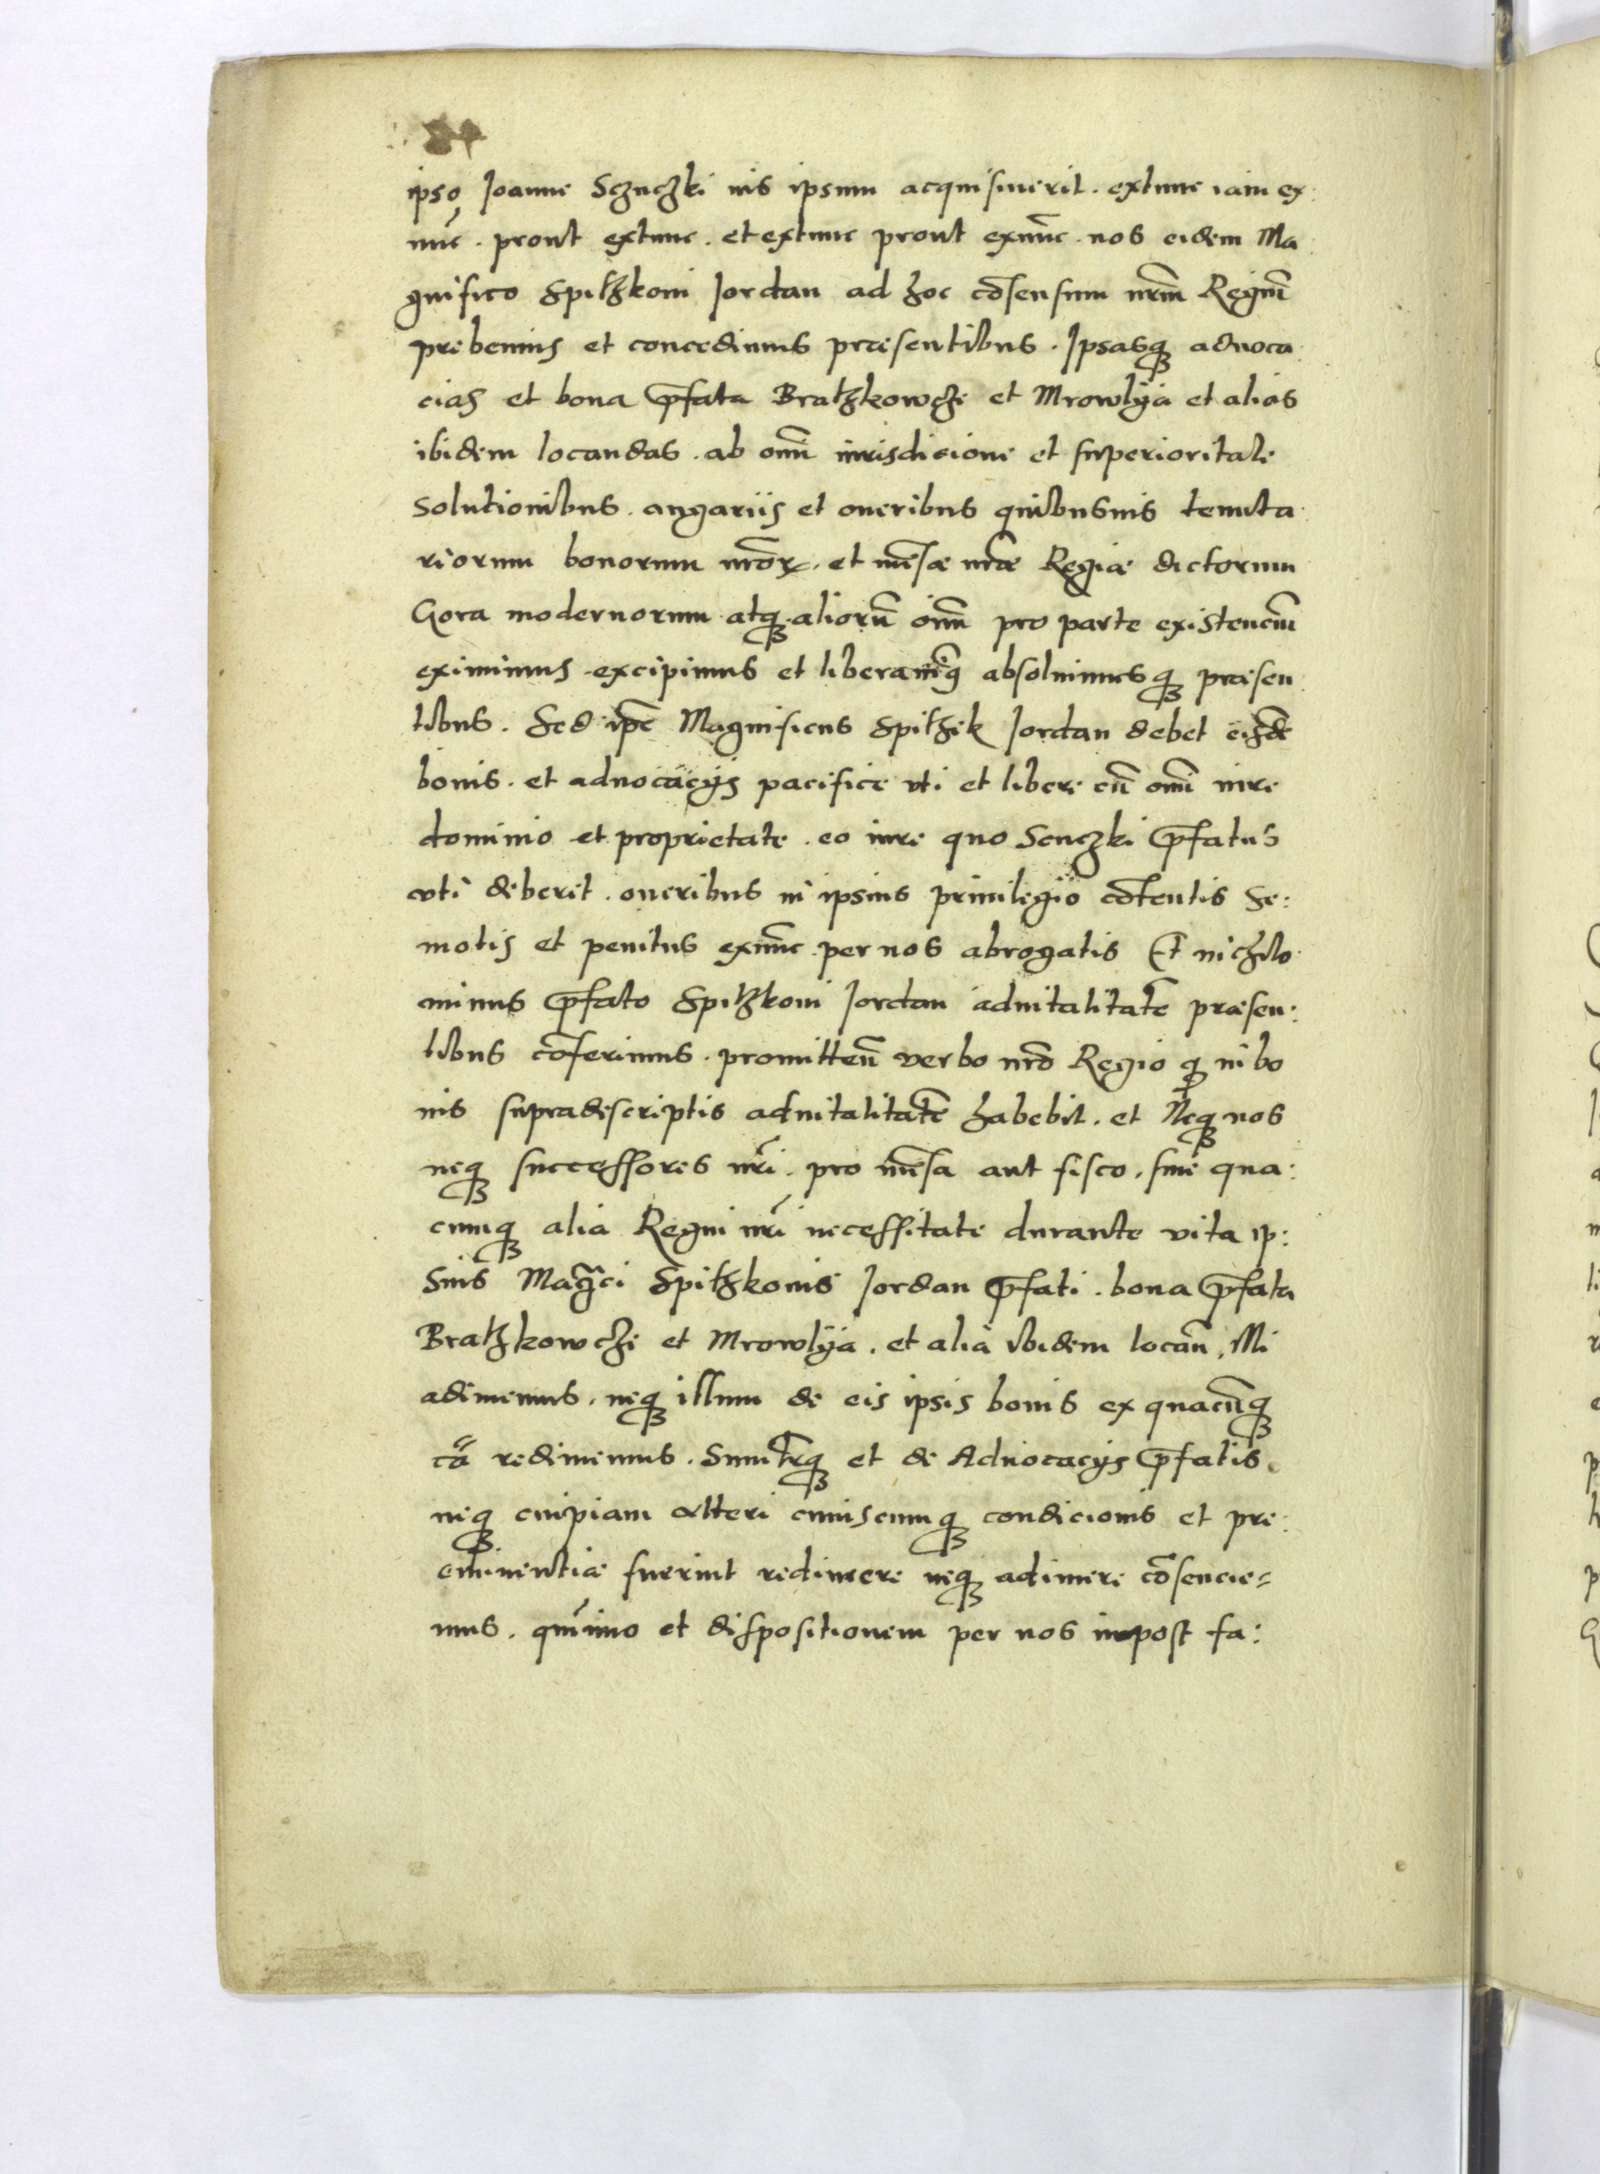 ipso Joanne Sczuczki ius ipsum acquisiuerit. extunc iam ex
nuc̄. prout extunc. et extunc prout exnūc. nos eidem Ma
gnifico Spitzkoni Jordan ad hoc cōsensum nrm̄ Regiū
prebemus et concedimus praesentibus. Ipsasq; aduoca
cias et bona p̄fata Bratzkowcze et Mrowlya et alias
ibidem locandas. ab om̄i iurisdicione et superioritate
solutionibus. angariis et oneribus quibusuis tenuta
riorum bonorum nrōꝝ. et mēsae nrae Regiae dictorum
Gora modernorum atq; aliorū om̄m pro parte existenciū
eximimus. excipimus et liberamꝰ absoluimusq; praesen
tibus. Sed ip̄e Magnificus Spitzik Jordan debet eisdē
bonis. et aduocacys pacifice vti et libere cū om̄i iure
dominio et proprietate. eo iure quo Senczki p̄fatus
vti deberet. oneribus in ipsius priuilegio cōtentis se:
motis et penitus exnūc per nos abrogatis Et nichilo
minus p̄fato Spitzkoni Jordan aduitalitatē praesen:
tibus cōferimus. promitteñ verbo nrō Regio ꝙ in bo
nis supradescriptis aduitalitatē habebit. et Neq; nos
neq; successores nri̅. pro mēsa aut fisco. siue qua:
cunq; alia Regni nri̅ necessitate durante vita ip:
sius Mag̅ci Spitzkonis Jordan p̄fati. bona p̄fata
Bratzkowcze et Mrowlya. et alia ibidem locan̄. Illi
adimemus. neq; illum de eis ipsis bonis ex quacūq;
cā redimemus. Simlr̄q; et de Aduocacys p̄fatis
neq; cuipiam alteri cuiuscunq; condicionis et pre:
eminentiae fuerint redimere neq; adimere cōsencie=
mus. quīimo et dispositionem per nos inpost fa: